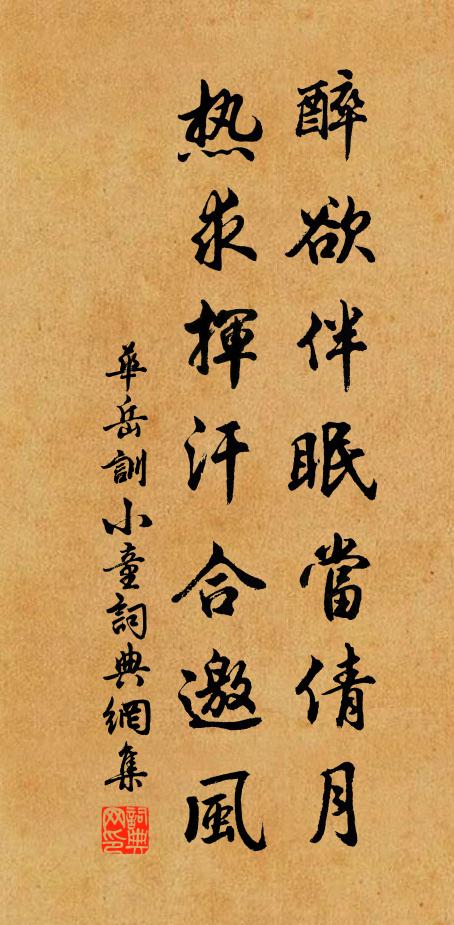 醉欲伴眠當倩月
热求揮汗合邀風
華岳訓小童詞典網集
詞典网印